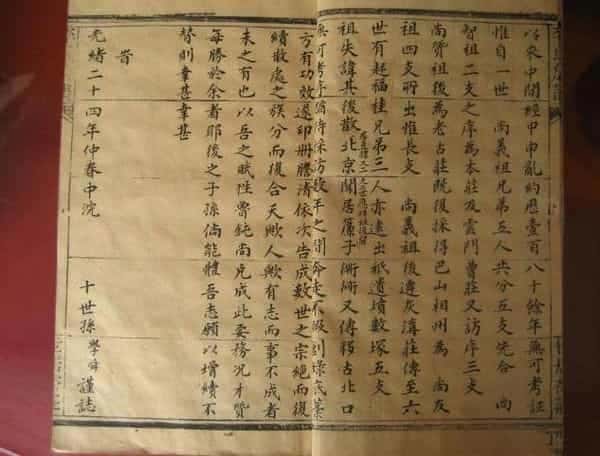 以來中間經甲申亂約歷壹百八十餘年無可考証
惟自一世 尚義祖兄弟五人共分五支先合 尚
智祖二支之序為本莊及雲門曹莊又訪序三支
尚賢祖後為老古莊院後採得巴山相州為 尚友
祖四支所出惟長支 尚義祖後遷灰溝莊傳至六
世有起福桂兄弟三人亦遠出祇遺墳數塚五支
祖失諱其後散北京閣居簾子衚衕又傳移古北口
無可考序
方有功效遂印冊謄清依次告成數世之宗絕而復
續散處之族分而復合天歟人歟有志而事不成者
未之有也以吾之賦性魯鈍尚克成此要務况才質
每勝於余者耶後之子孫倘能體吾志願以增續不
替則幸甚幸甚
旹
光緒二十四年仲春中浣 十世孫學舜謹誌